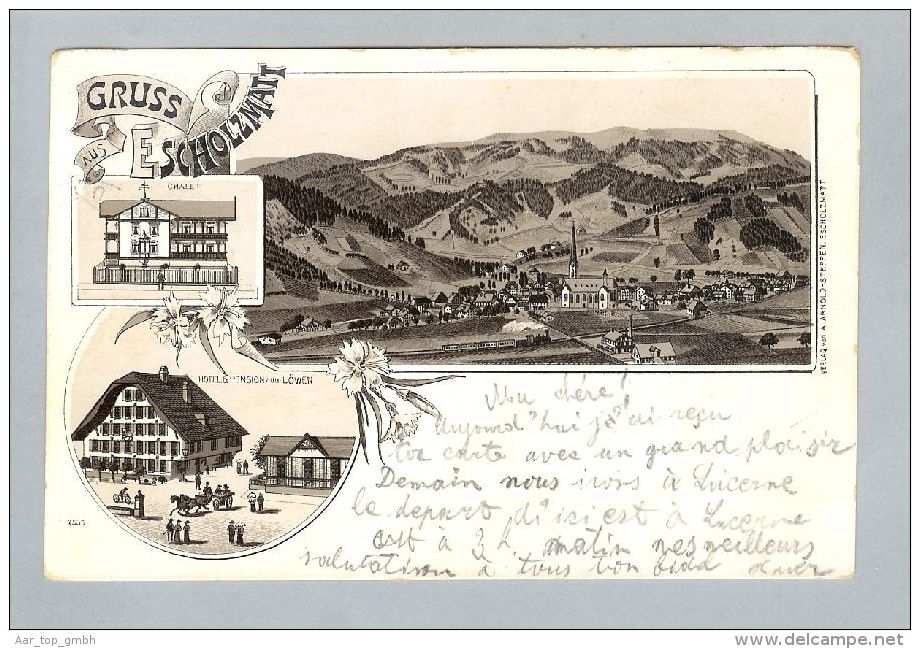 GRUSS
AUS
ESCHOLZMATT
CHALET
HOTEL & PENSION zum LÖWEN
VERLAG von A. ARNOLD-STEFFEN, ESCHOLZMATT
chére!
Aujourd'hui j'ai reçu
carte avec un grand plaisir
Demain nous irons à Lucerne
le depart d'ici est à Lucerne
est à 3 h. matin mes veilleurs
salutation à tous ton
Aar_top_gmbh
www.delcampe.net